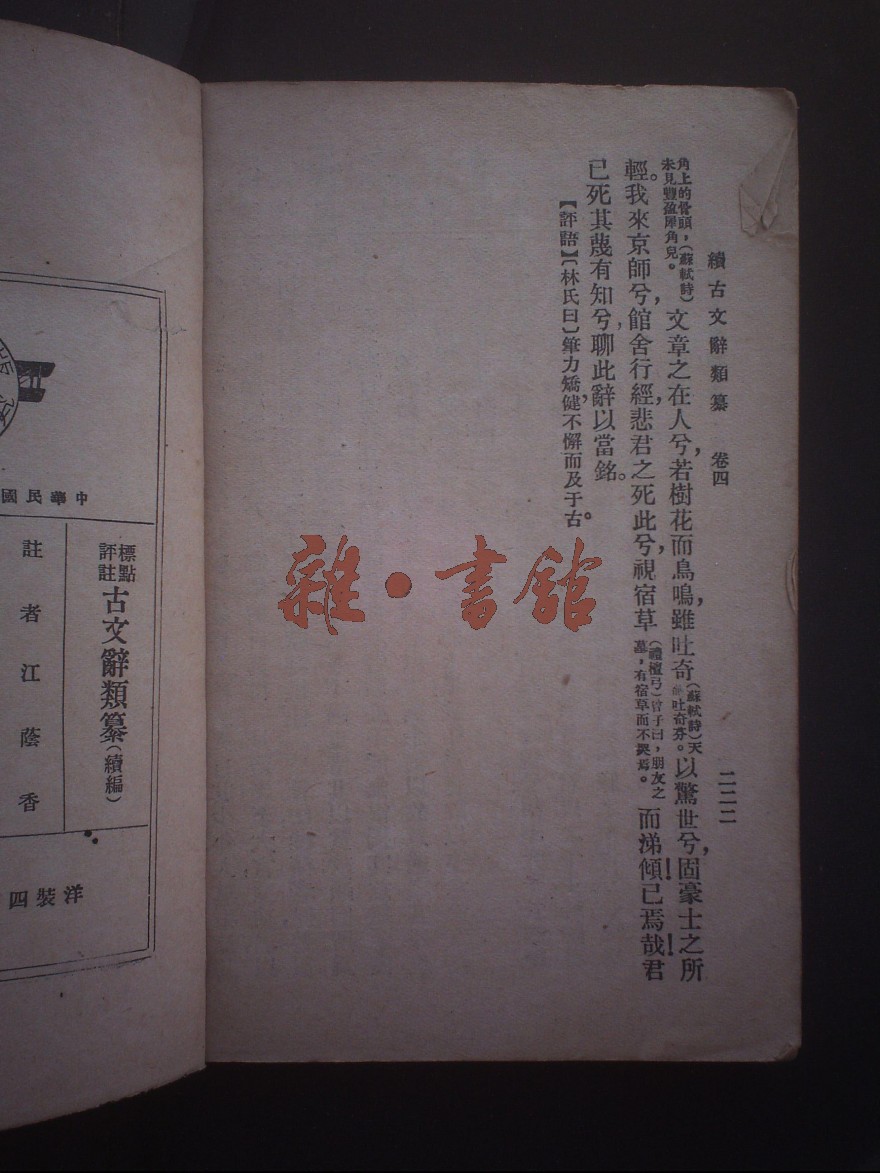 續古文辭類纂 卷四 二二二
角上的骨頭，（蘇軾詩）
未見豐盈犀角兒。
文章之在人兮，若樹花而鳥鳴，雖吐奇
（蘇軾詩）天
吐奇芬。
以驚世兮，固豪士之所
輕。我來京師兮，館舍行經，悲君之死此兮，視宿草
（禮檀弓）曾子曰，朋友之
墓，有宿草而不哭焉。
而涕傾！已焉哉！君
已死其蔑有知兮，聊此辭以當銘。
【評語】〔林氏曰〕筆力矯健，不懈而及于古。
雜·書館
中華民國
標點
評註
古文辭類纂（續編）
註者江蔭香
洋裝四